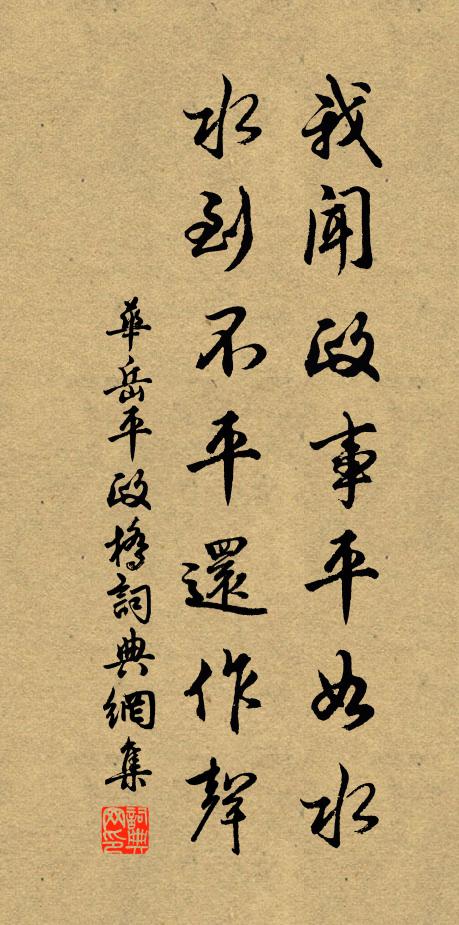 我闻政事平如水
水到不平還作聲
華岳平政橋詞典網集
詞典网印